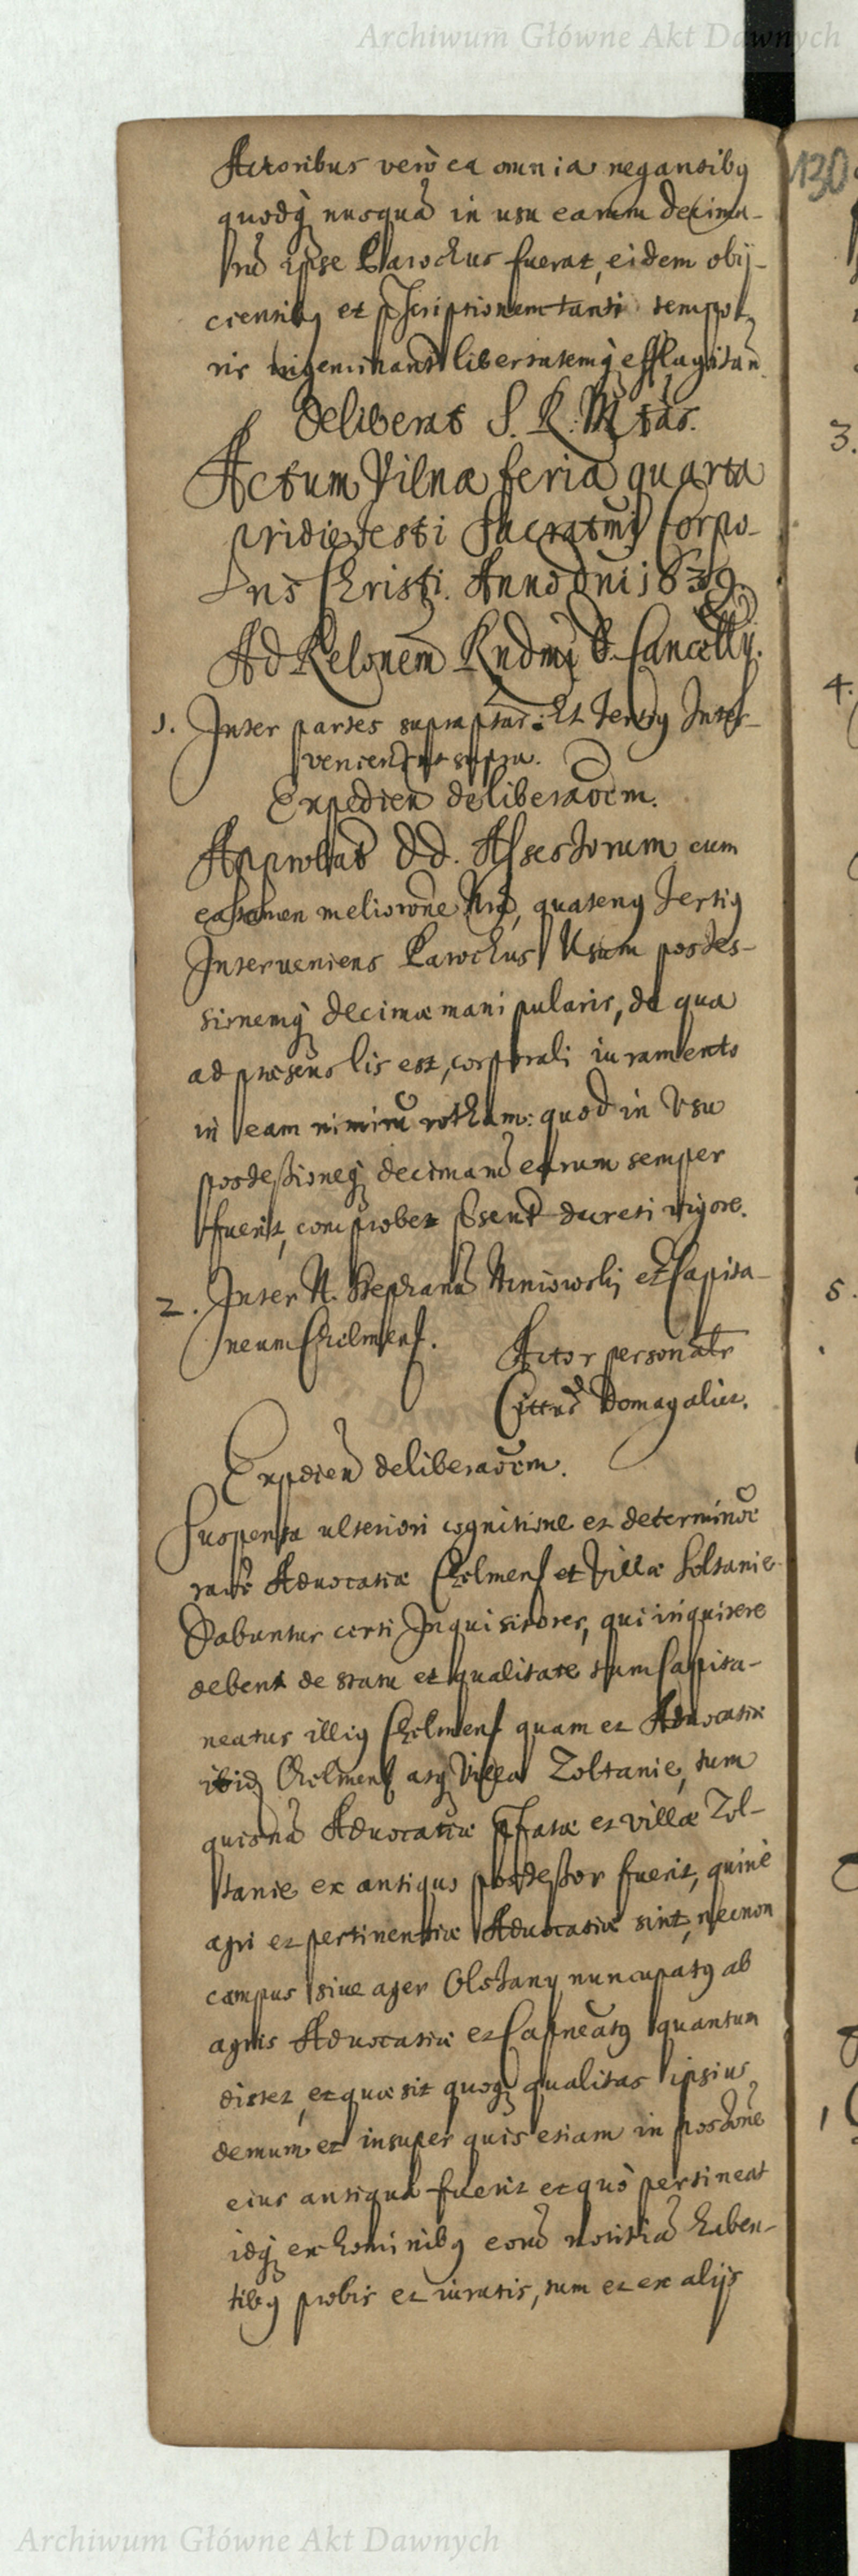 Archiwum Główne Akt Dawnych
Actoribus verò ea omnia negantibꝫ
quodq̄ nusquā in usu earum decima-
rū ipse Parochus fuerat, eidem obij-
cientibꝫ et pscriptionem tanti tempo-
ris ingeminant libertatemq̄ efflagitan
deliberat S. R. Mtas.
Actum Vilnæ feria quarta
pridie Festi Sacratmi Corpo-
ris Christi. Anno dni 1639.
Ad Relonem Rndmi V. Cancellrij.
1. Inter partes supraptas. Et Tertiꝫ Inter-
venien ut supra.
Expedien deliberaõem.
Approbat DD. Assessorum cum
ea tamen melioraõne Nra, quatenꝫ Tertiꝫ
Interveniens Parochus Usum posses-
sionemq̄ decimæ manipularis, de qua
ad præsens lis est, corporali iuramento
in eam nimirū rotham: quod in Usu
possessioneq̄ decimarū earum semper
fuerit, comprobet pñsent decreti vigore.
2. Inter N. Stephanū et Capita-
neum Chelmens.
Actor personatr
Cittus Domagalicz.
Expdien deliberaõem.
Suspensa ulteriori cognitione et determinõe
raõe Advocatiæ Chelmens et Villæ Soltanie
Dabuntur certi Inquisitores, qui inquirere
debent de statu et qualitate tum Capita-
neatus illiꝫ Chelmens quam et Advocatiæ
ibid Chelmens atq̄ Villæ Zoltanie, tum
quisnā Advocatiæ pfatæ et villæ Zol-
tanie ex antiquo possessor fuerit, quinè
agri et pertinentiæ Advocatiæ sint, necnon
campus sive ager Olstany nuncupatꝫ ab
agris Advocatiæ et Capneatꝫ quantum
distet, et quæ sit quoq̄ qualitas ipsius,
demum et insuper quis etiam in possõne
eius antiqua fuerit et quò pertineat
idq̄ ex hominibꝫ eorū notitiā haben-
tibꝫ probis et iuratis, tum et ex alijs
130
3.
4.
5.
Archiwum Główne Akt Dawnych